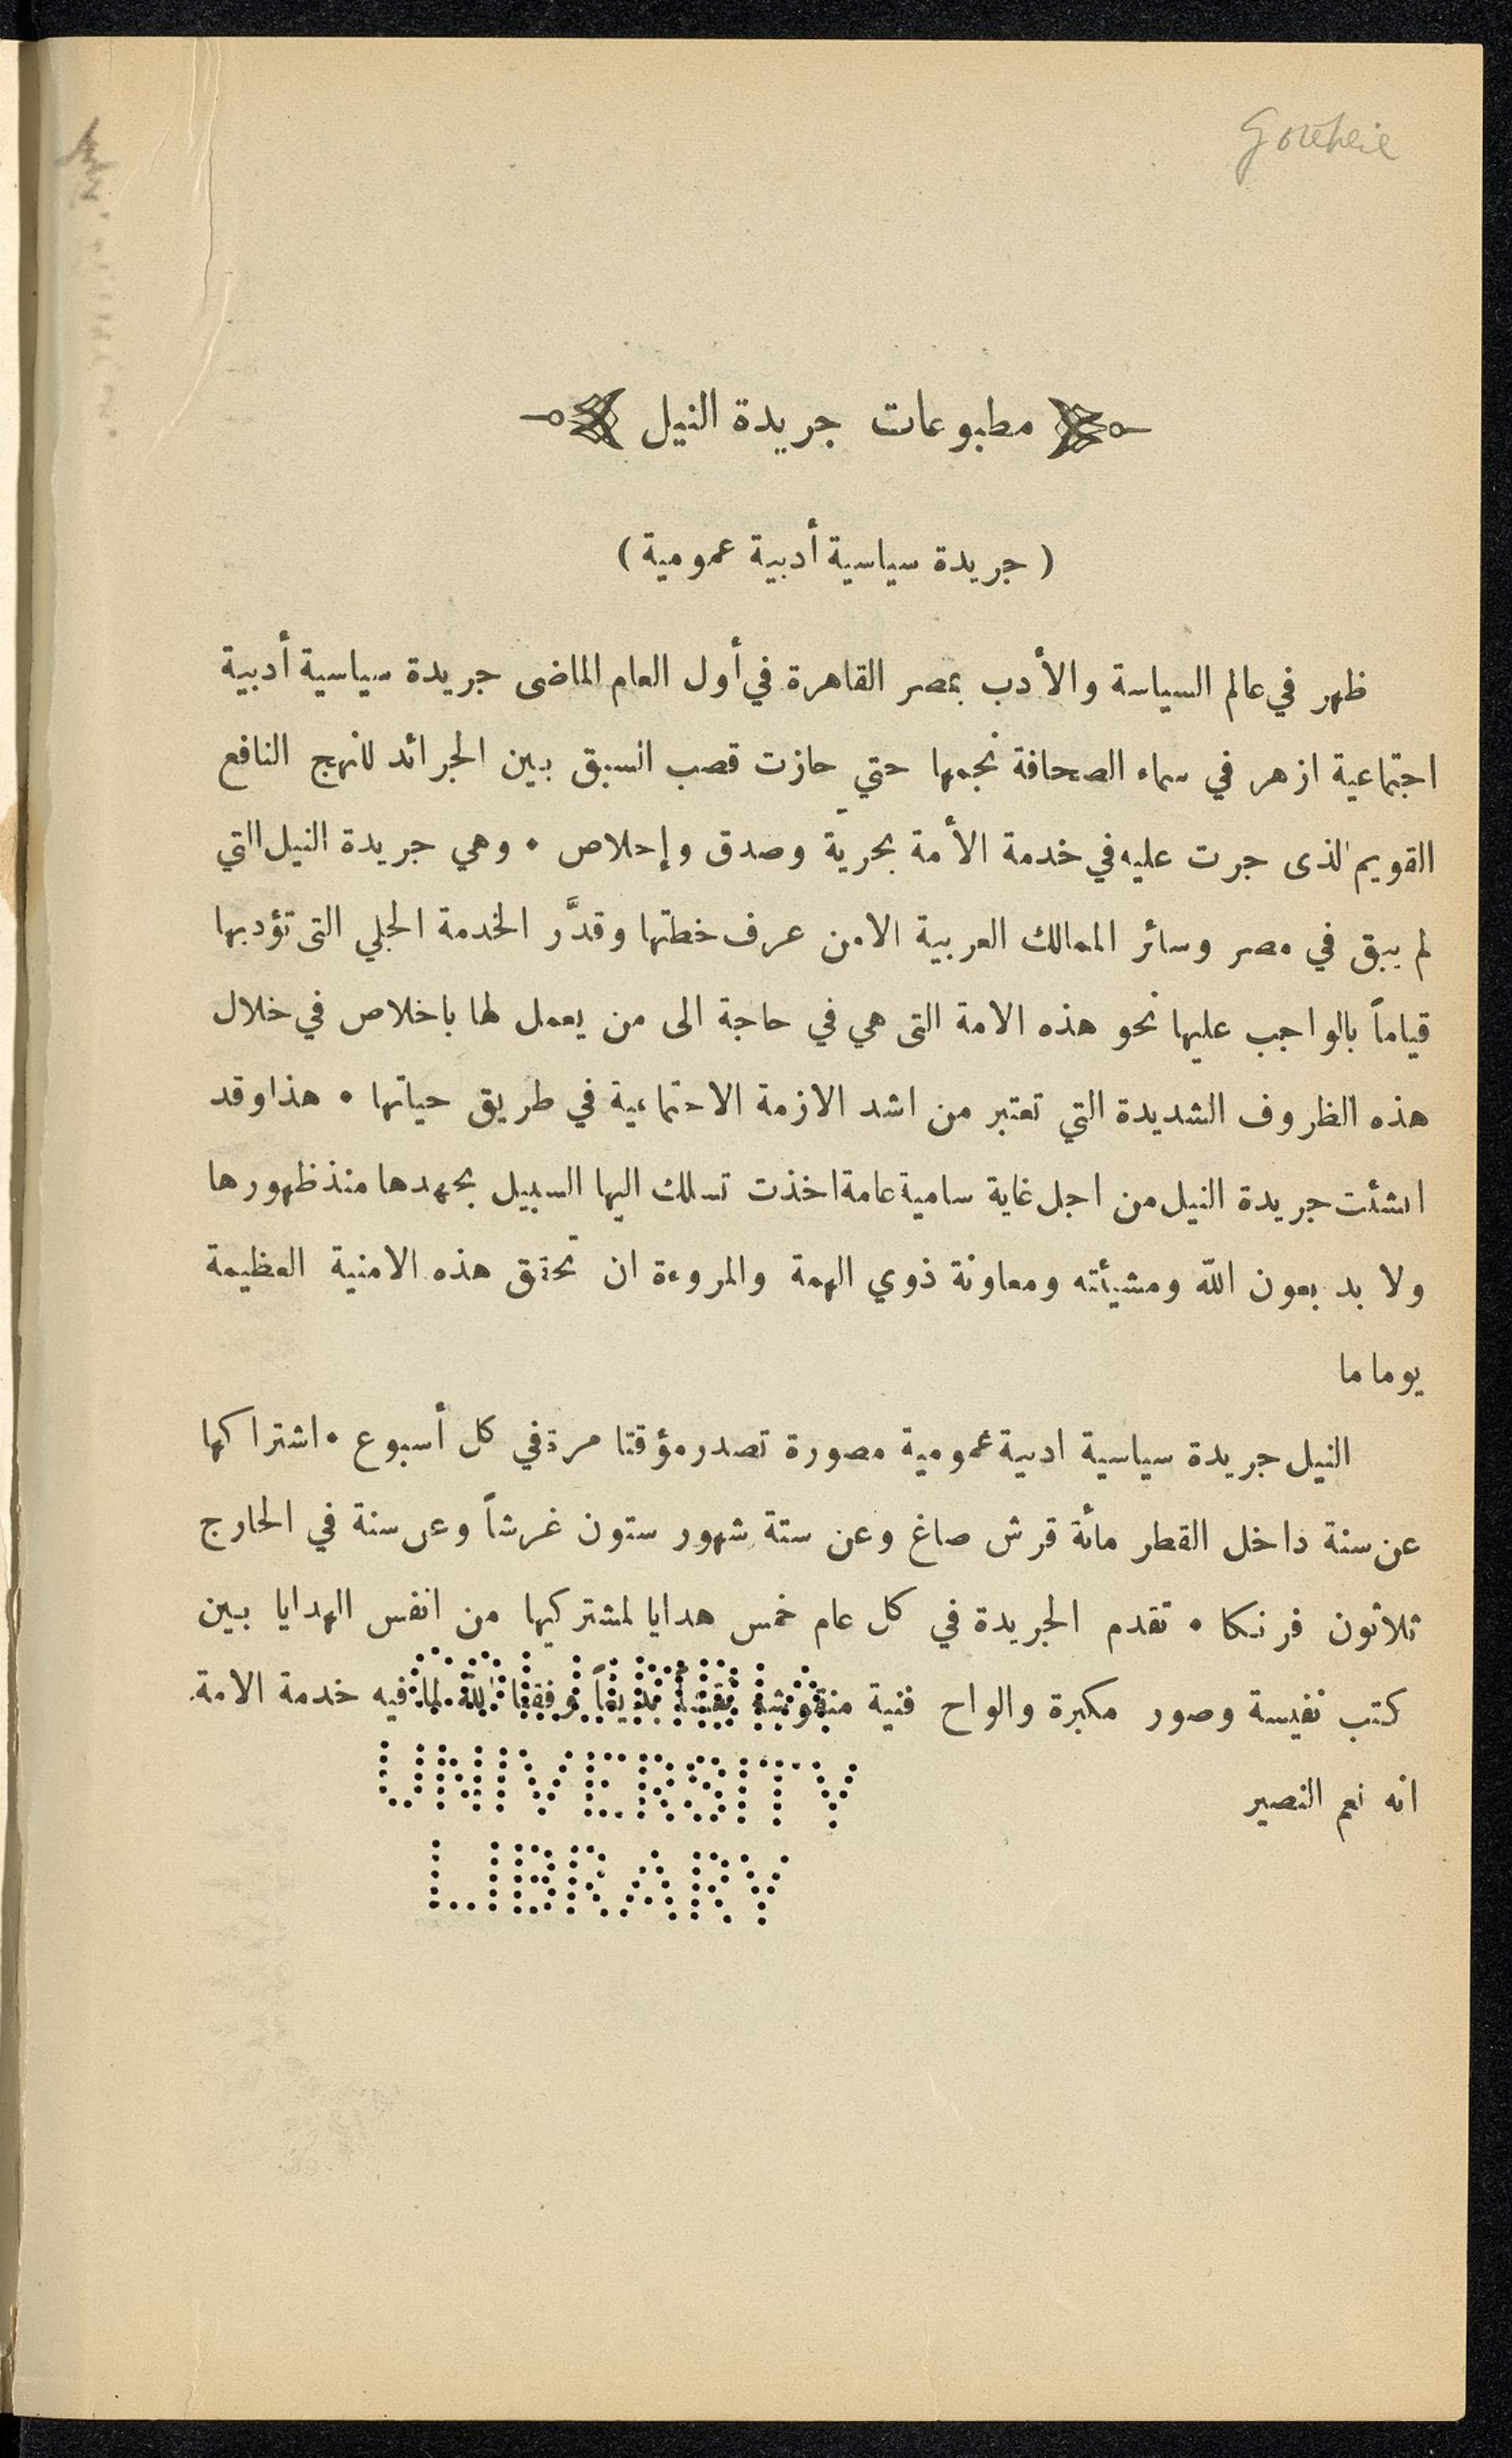 Gottheil
مطبوعات جريدة النيل
( جريدة سياسية أدبية عمومية )
ظهر في عالم السياسة والأدب بمصر القاهرة في أول العام الماضى جريدة سياسية أدبية
اجتماعية ازهر في سماء الصحافة نجمها حتي حازت قصب السبق بين الجرائد للنهج النافع
القويم الذى جرت عليه في خدمة الأمة بحرية وصدق وإخلاص • وهي جريدة النيل التي
لم يبق في مصر وسائر الممالك العربية الا من عرف خطتها وقدَّر الخدمة الجلي التى تؤديها
قياماً بالواجب عليها نحو هذه الامة التى هي في حاجة الى من يعمل لها باخلاص في خلال
هذه الظروف الشديدة التي تعتبر من اشد الازمة الاجتماعية في طريق حياتها • هذا وقد
انشئت جريدة النيل من اجل غاية سامية عامة اخذت تسلك اليها السبيل بجهدها منذ ظهورها
ولا بد بعون الله ومشيئته ومعاونة ذوي الهمة والمروءة ان تحقق هذه الامنية العظيمة
يوما ما
النيل جريدة سياسية ادبية عمومية مصورة تصدر مؤقتا مرة في كل أسبوع • اشتراكها
عن سنة داخل القطر مائة قرش صاغ وعن ستة شهور ستون غرشاً وعن سنة في الخارج
ثلاثون فرنكا • تقدم الجريدة في كل عام خمس هدايا لمشتركيها من انفس الهدايا بين
كتب نفيسة وصور مكبرة والواح فنية منقوشة نقشاً بديعاً وفقنا الله لما فيه خدمة الامة
انه نعم النصير
UNIVERSITY
LIBRARY